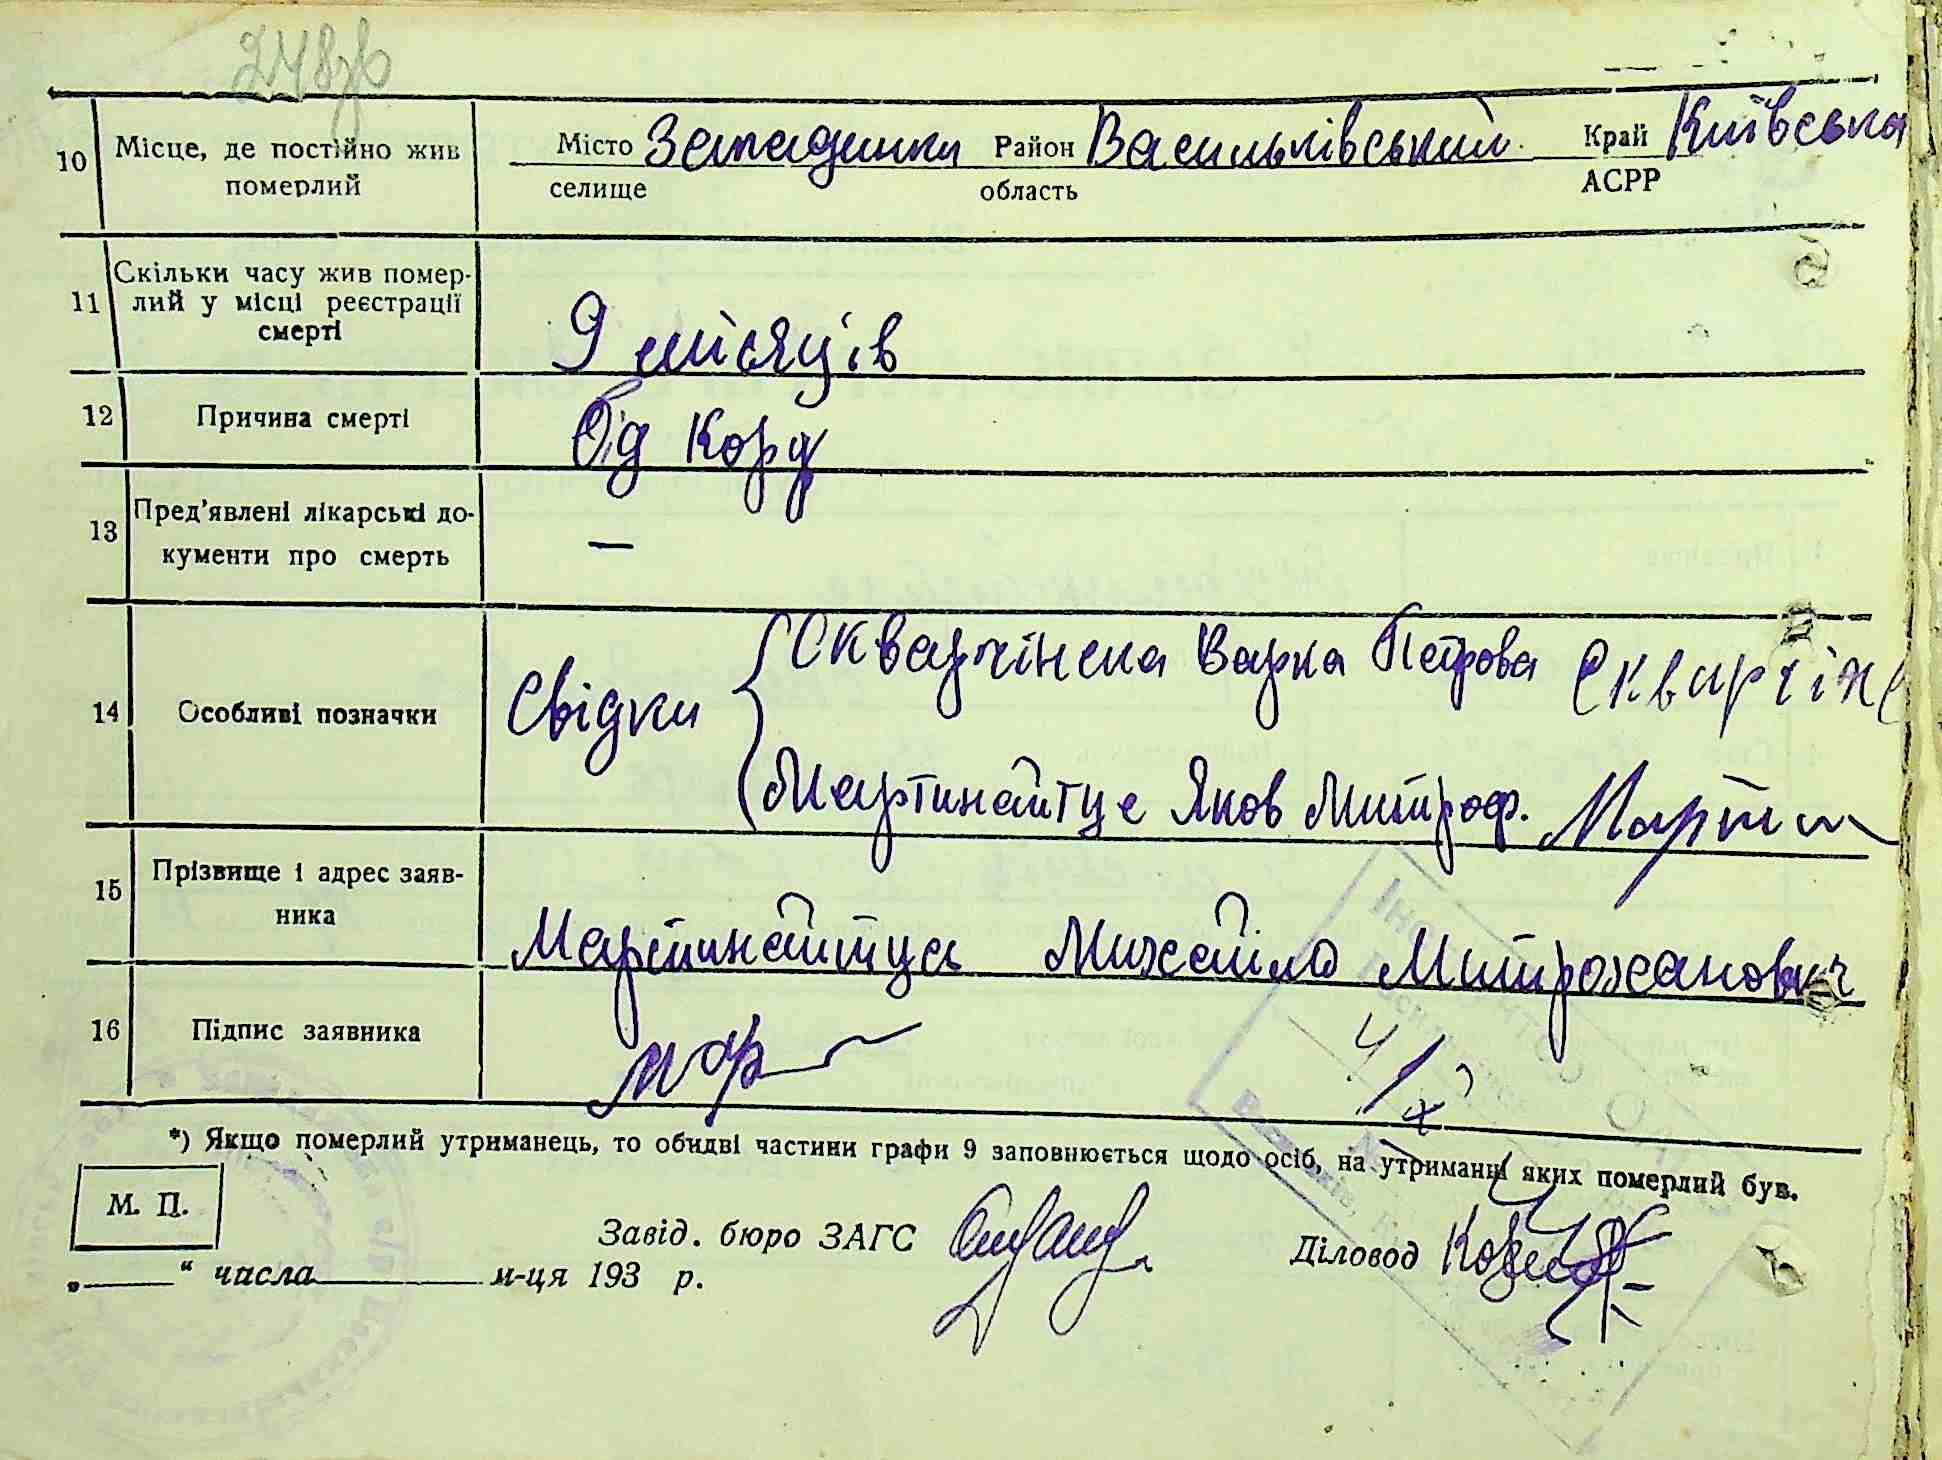 248зв
10 Місце, де постійно жив померлий Місто селище Западинка Район область Васильківський Край АСРР Київська
11 Скільки часу жив помер-
лий у місці реєстрації
смерті
9 місяців
12 Причина смерті Від Кору
13 Пред'явлені лікарські до-
кументи про смерть
—
14 Особливі позначки Свідки
Скварчінска Варка Петрова Скварчінс
Мартинайтце Яков Митроф. Март
15 Прізвище і адрес заяв-
ника
Мартинайтця Михайло Митроханович
16 Підпис заявника Мар
4/X
*) Якщо померлий утриманець, то обидві частини графи 9 заповнюється щодо осіб, на утриманні яких померлий був.
М. П.
Завід. бюро ЗАГС Діловод
„ “ числа м-ця 193 р.